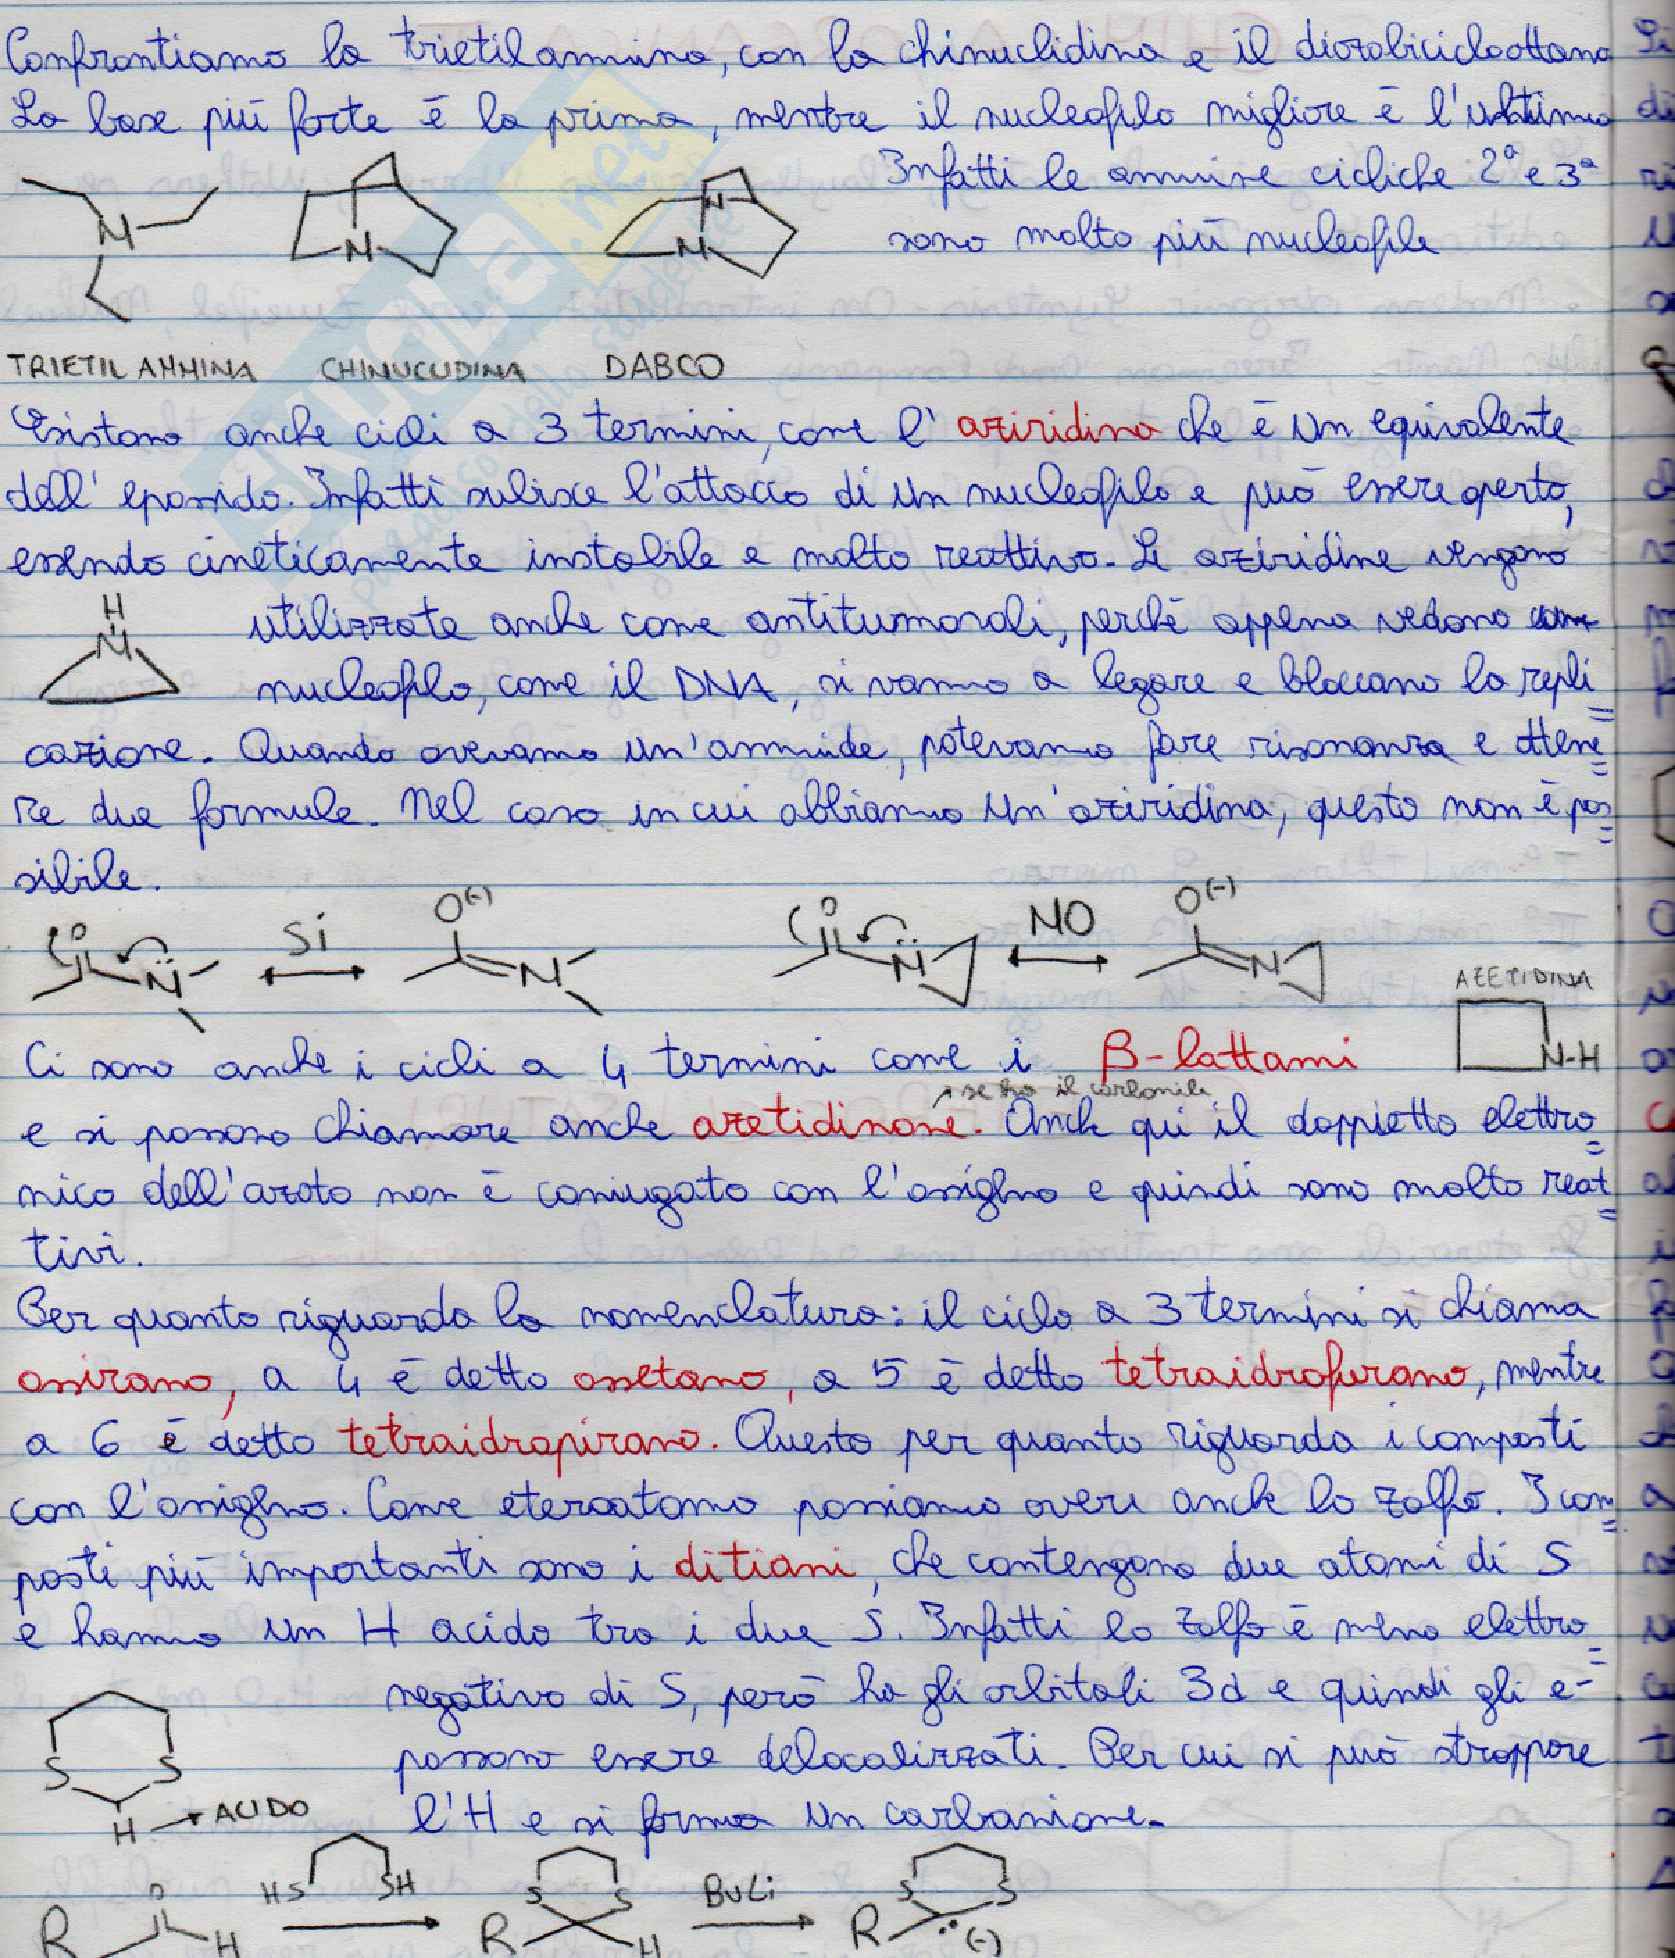 Confrontiamo la trietilammina, con la chinuclidina e il diazabicicloottano
La base più forte è la prima, mentre il nucleofilo migliore è l'ultimo
Infatti le ammine cicliche 2ª e 3ª
sono molto più nucleofile
N N N N
TRIETILAMMINA CHINUCLIDINA DABCO
Esistono anche cicli a 3 termini, come l'aziridina che è un equivalente
dell'epossido. Infatti subisce l'attacco di un nucleofilo e può essere aperto,
essendo cineticamente instabile e molto reattivo. Le aziridine vengono
H
N
utilizzate anche come antitumorali, perchè appena vedono
nucleofilo, come il DNA, si vanno a legare e bloccano la repli
cazione. Quando avevamo un'ammide, potevamo fare risonanza e ottene
re due formule. Nel caso in cui abbiamo un'aziridina, questo non è pos
sibile.
O N SI O(-) N O N NO O(-) N
AZETIDINA
N-H
Ci sono anche i cicli a 4 termini come i β-lattami
se ho il carbonile
e si possono chiamare anche azetidinone. Anche qui il doppietto elettro
nico dell'azoto non è coniugato con l'ossigeno e quindi sono molto reat
tivi.
Per quanto riguarda la nomenclatura: il ciclo a 3 termini si chiama
ossirano, a 4 è detto ossetano, a 5 è detto tetraidrofurano, mentre
a 6 è detto tetraidropirano. Questo per quanto riguarda i composti
con l'ossigeno. Come eteroatomo possiamo avere anche lo zolfo. I com
posti più importanti sono i ditiani, che contengono due atomi di S
e hanno un H acido tra i due S. Infatti lo zolfo è meno elettro
negativo di S, però ha gli orbitali 3d e quindi gli e-
possono essere delocalizzati. Per cui si può strappare
l'H e si forma un carbanione.
S S
H → ACIDO
R O H HS SH R S S H BuLi R S S (-)